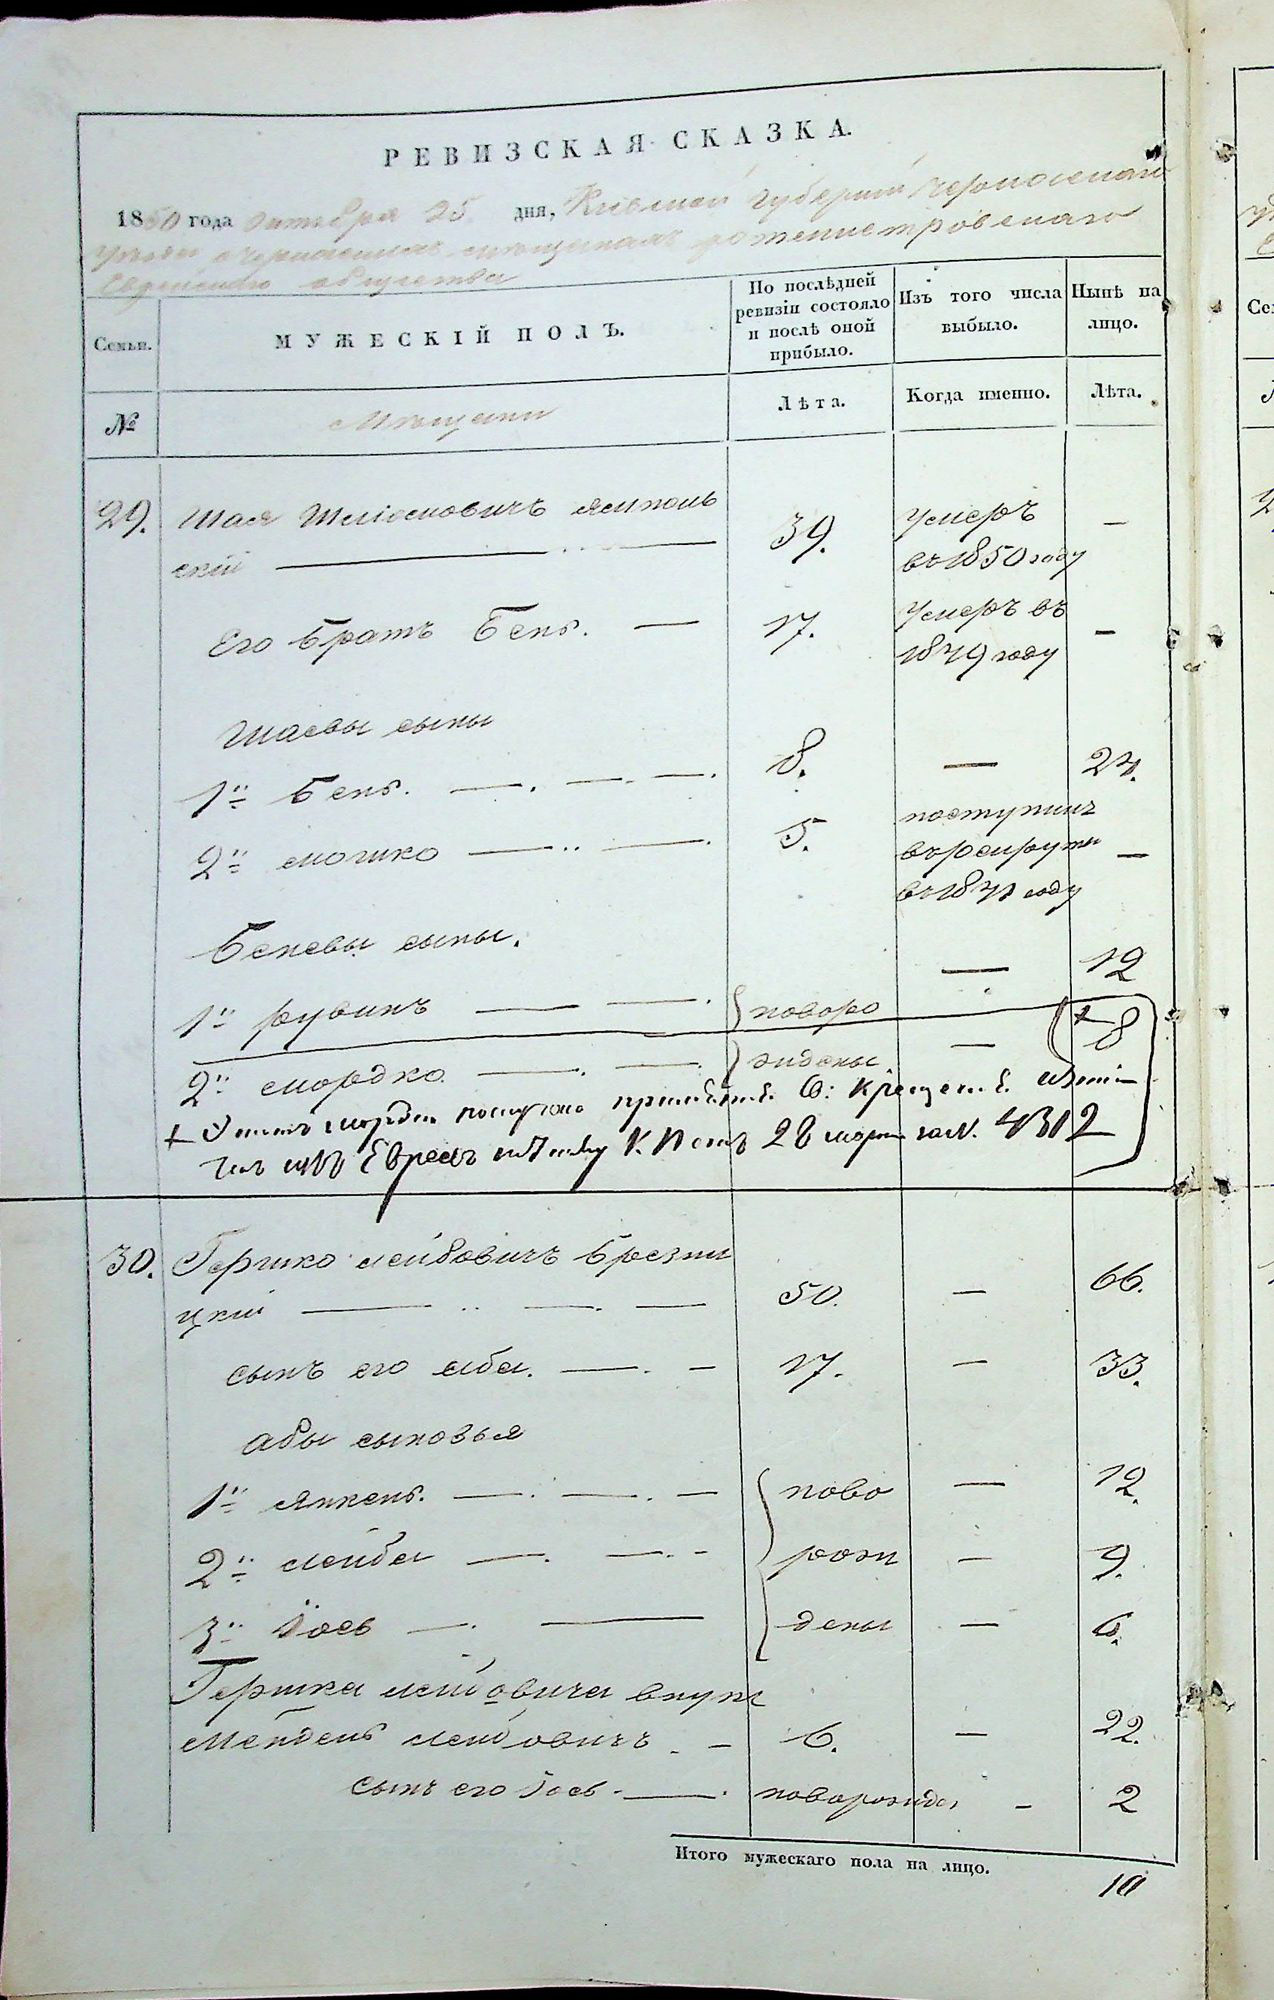 РЕВИЗСКАЯ СКАЗКА.
1850 года октября 25 дня, Кіевской губерніи Черкаскаго
уезда о черкаскихъ мещанахъ ротмистровскаго
Еврейскаго общества
Семьи.
МУЖЕСКІЙ ПОЛЪ.
По послѣдней ревизіи состояло и послѣ оной прибыло.
Изъ того числа выбыло.
Нынѣ на лицо.
№
Мещани
Лѣта.
Когда именно.
Лѣта.
29. Шая Шліомовичъ ямполь
скій 39. умеръ въ 1850 году —
Его братъ Бень. — 17. умеръ въ 1849 году —
Шаевы сыны
1й Бень. 8. — 24.
2й мошко 5. поступилъ в рекруты в 1841 году —
Беневы сыны.
1й рувинъ новоро — 12
2й мордко. ждены — 8
30. Гершко лейбовичъ брезни
цкій 50. — 66.
сынъ его аба. — 17. — 33.
абы сыновья
1й янкель. ново — 12.
2й лейба рож — 9.
3й Іось дены — 6.
Гершка лейбовича внукъ
Мендель лейбовичъ. — 6. — 22.
сынъ его Іось новорожде — 2
Итого мужескаго пола на лицо.
10